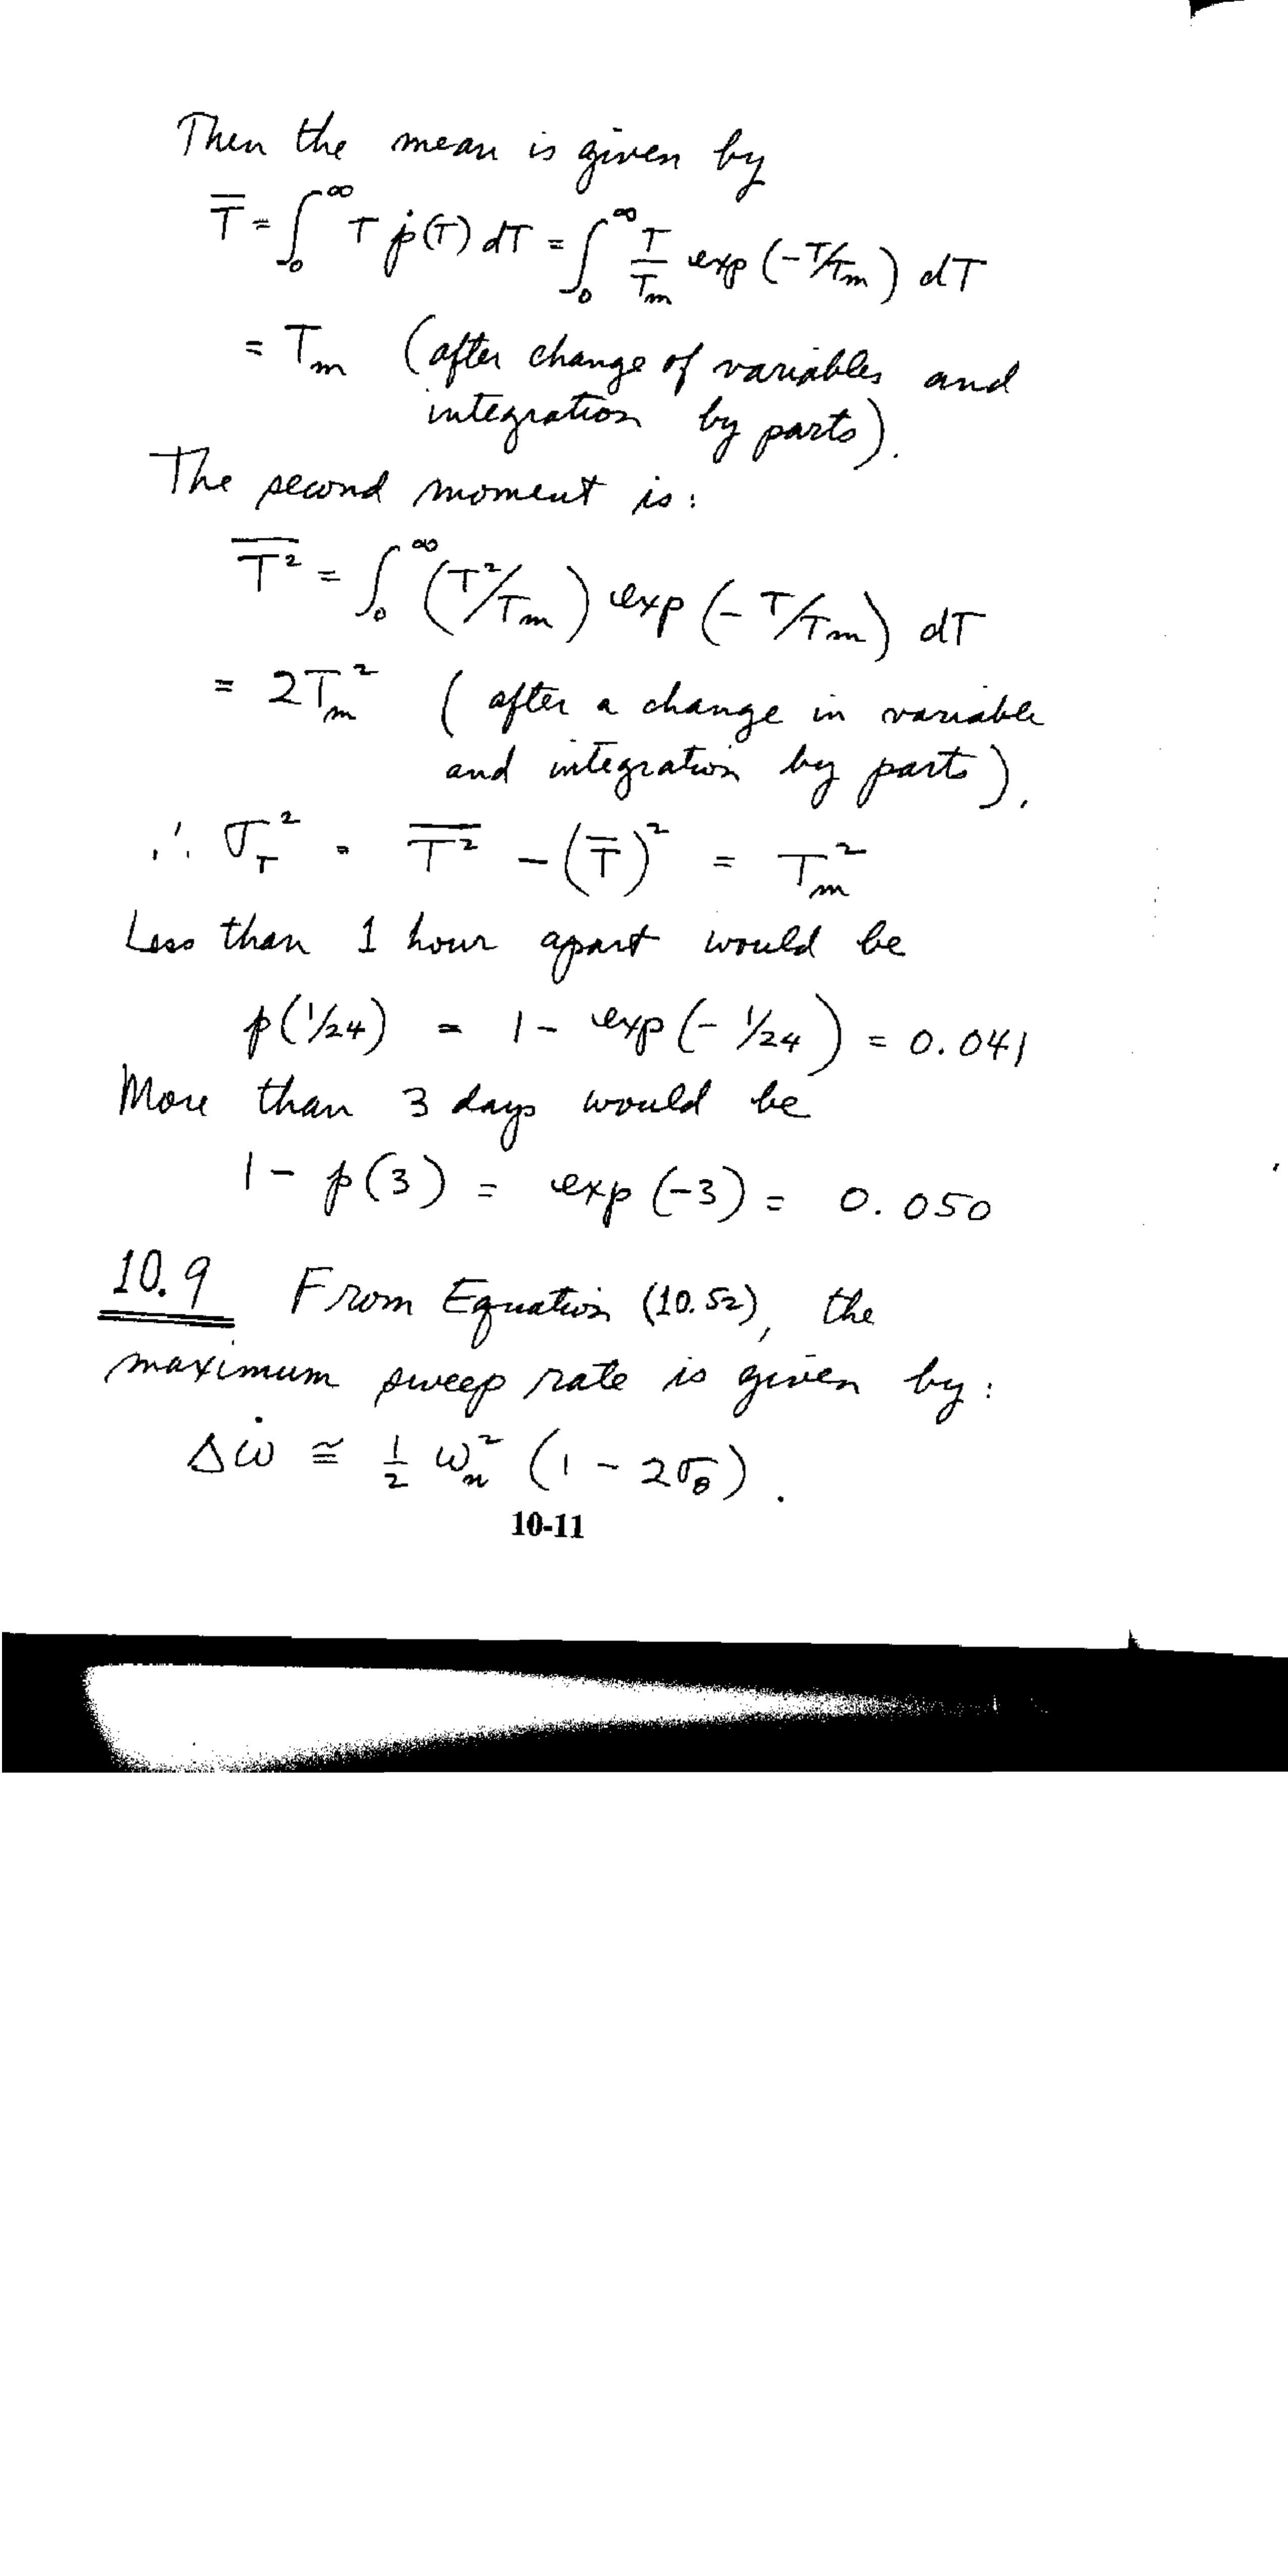 Then the mean is given by
T̅ = ∫₀^∞ T ṗ(T) dT = ∫₀^∞ T/Tm exp (-T/Tm) dT
= Tm (after change of variables and
integration by parts).
The second moment is:
T̅² = ∫₀^∞ (T²/Tm) exp (- T/Tm) dT
= 2Tm² ( after a change in variable
and integration by parts).
∴ σT² = T̅² - (T̅)² = Tm²
Less than 1 hour apart would be
p(1/24) = 1 - exp (- 1/24) = 0.041
More than 3 days would be
1 - p(3) = exp (-3) = 0.050
10.9 From Equation (10.52), the
maximum sweep rate is given by:
Δω̇ ≅ 1/2 ωn² (1 - 2σθ).
10-11